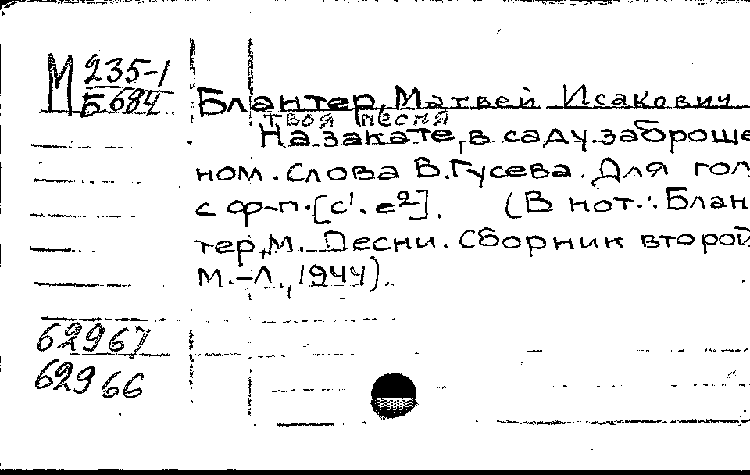 М 235-1
Б 684
Блантер, Матвей Исакович
Твоя песня
На закате, в саду заброше
ном. Слова В. Гусева. Для гол
с ф-п. [c'. e²]. (В нот.: Блан
тер, М. Песни. Сборник второй
М.-Л., 1944).
62967
62966